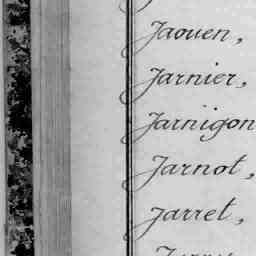 Jaouen,
Jarnier,
Jarnigon
Jarnot,
Jarret,